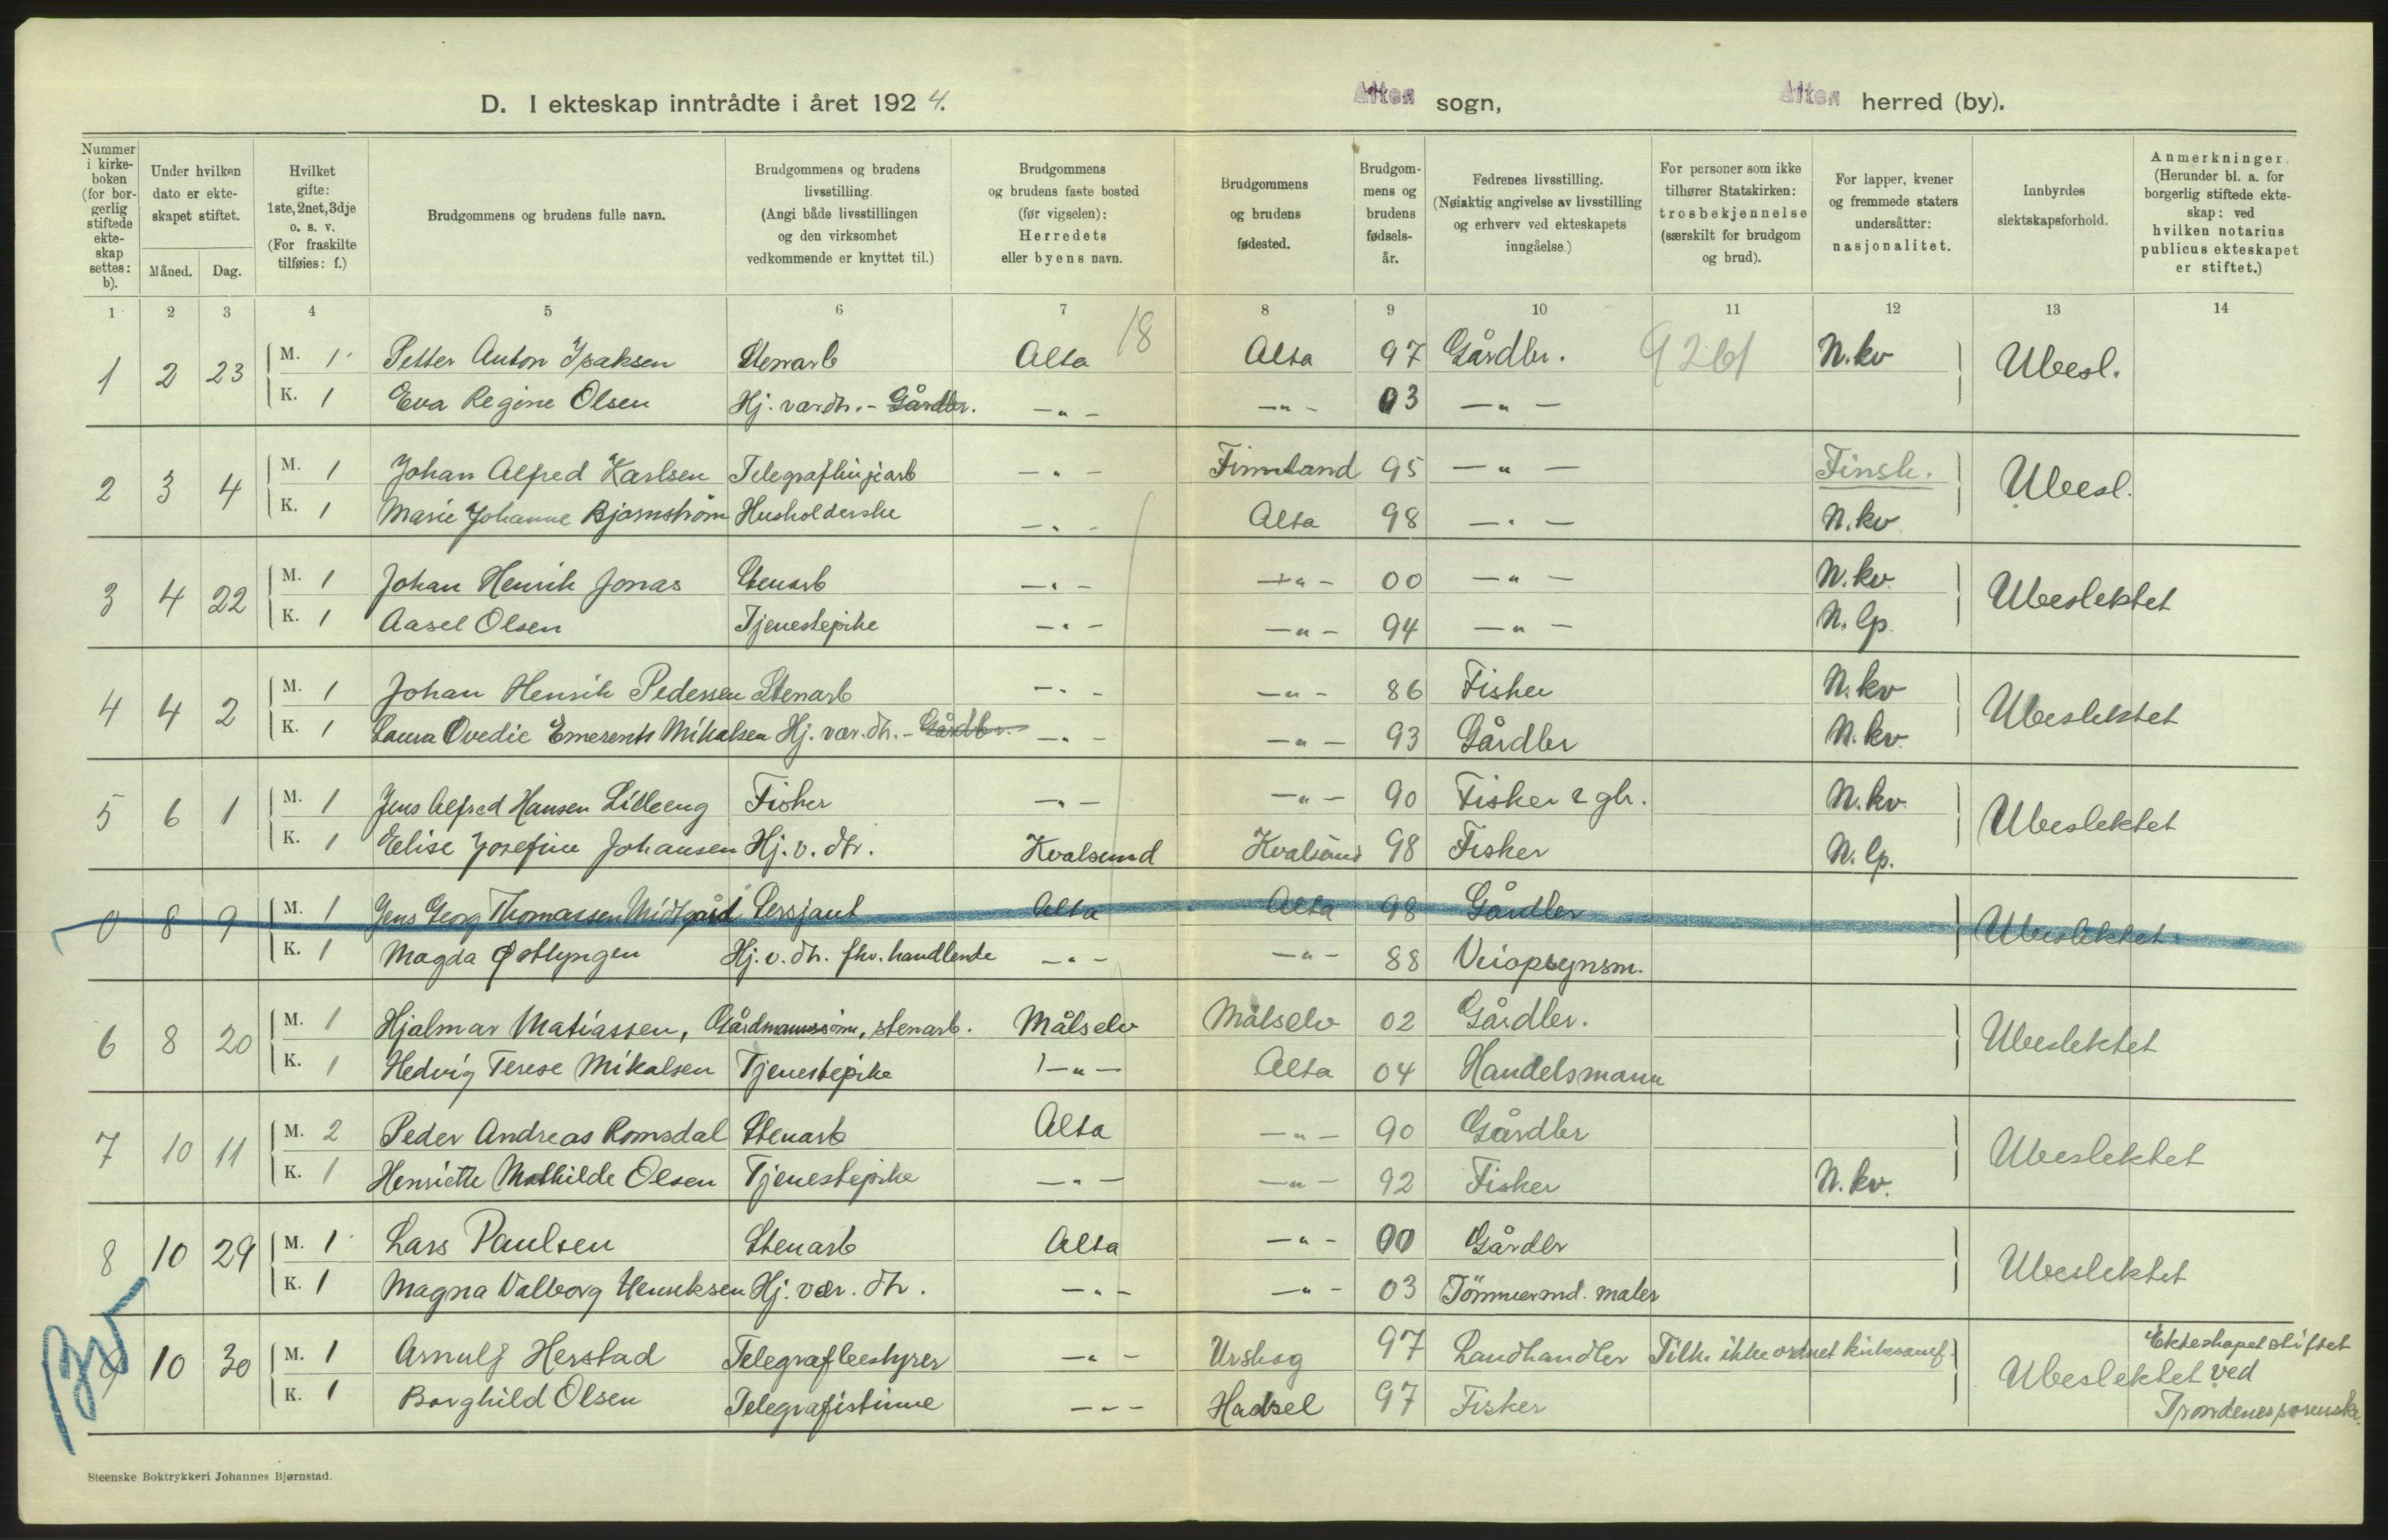 D. I ekteskap inntrådte i året 1924. Alten sogn, Alten herred (by).
Nummer i kirkeboken (for borgerlig stiftede ekteskap settes: b).
Under hvilken dato er ekteskapet stiftet.
Måned. Dag.
Hvilket gifte: 1ste, 2net, 3dje o. s. v. (For fraskilte tilføies: f.)
Brudgommens og brudens fulle navn.
Brudgommens og brudens livsstilling. (Angi både livsstillingen og den virksomhet vedkommende er knyttet til.)
Brudgommens og brudens faste bosted (før vigselen): Herredets eller byens navn.
Brudgommens og brudens fødested.
Brudgommens og brudens fødselsår.
Fedrenes livsstilling. (Nøiaktig angivelse av livsstilling og erhverv ved ekteskapets inngåelse.)
For personer som ikke tilhører Statskirken: trosbekjennelse (særskilt for brudgom og brud).
For lapper, kvener og fremmede staters undersåtter: nasjonalitet.
Innbyrdes slektskapsforhold.
Anmerkninger. (Herunder bl. a. for borgerlig stiftede ekteskap: ved hvilken notarius publicus ekteskapet er stiftet.)
1 2 3 4 5 6 7 8 9 10 11 12 13 14
18
1 2 23 M. 1 Petter Anton Isaksen Stenarb Alta Alta 97 Gårdbr. 9261 N.kv Ubesl.
K. 1 Eva Regine Olsen Hj. værdtr. - Gårdbr. -"- -"- 03 -"-
2 3 4 M. 1 Johan Alfred Karlsen Telegraflinjearb -"- Finnland 95 -"- Finsk. Ubesl.
K. 1 Marie Johanne Bjørnstrøm Husholderske -"- Alta 98 -"- N.kv
3 4 22 M. 1 Johan Henrik Jonas Stenarb -"- -"- 00 -"- N.kv. Ubeslektet
K. 1 Aasel Olsen Tjenestepike -"- -"- 94 -"- N. lp.
4 4 2 M. 1 Johan Henrik Pedersen Stenarb -"- -"- 86 Fisker N.kv Ubeslektet
K. 1 Laura Ovedie Emerents Mikalsen Hj. vær. dtr. - Gårdbr. -"- -"- 93 Gårdbr N.kv.
5 6 1 M. 1 Jens Alfred Hansen Lilleeng Fisker -"- -"- 90 Fisker & gbr. N.kv. Ubeslektet
K. 1 Elise Josefine Johansen Hj. v. dtr. Kvalsund Kvalsund 98 Fisker N. lp.
0 8 9 M. 1 Jens Georg Thomassen Midtgård Sersjant Alta Alta 98 Gårdbr Ubeslektet
K. 1 Magda Østlyngen Hj. v. dtr. fhv. handlende -"- -"- 88 Veiopsynsm.
6 8 20 M. 1 Hjalmar Matiassen, Gårdmannssønn, stenarb. Målselv Målselv 02 Gårdbr. Ubeslektet
K. 1 Hedvig Terese Mikalsen Tjenestepike -"- Alta 04 Handelsmann
7 10 11 M. 2 Peder Andreas Romsdal Stenarb Alta -"- 90 Gårdbr Ubeslektet
K. 1 Henriette Mathilde Olsen Tjenestepike -"- -"- 92 Fisker N.kv.
8 10 29 M. 1 Lars Paulsen Stenarb Alta -"- 00 Gårdbr Ubeslektet
K. 1 Magna Valborg Henriksen Hj. vær. dtr. -"- -"- 03 Tømmermd. maler
9 10 30 M. 1 Arnulf Herstad Telegrafbestyrer -"- Urskog 97 Landhandler Tilh. ikke ordnet kirkesamf. Ubeslektet Ekteskapet stiftet ved Trondenes sorenskr.
K. 1 Borghild Olsen Telegrafistinne -"- Hadsel 97 Fisker
Steenske Boktrykkeri Johannes Bjørnstad.